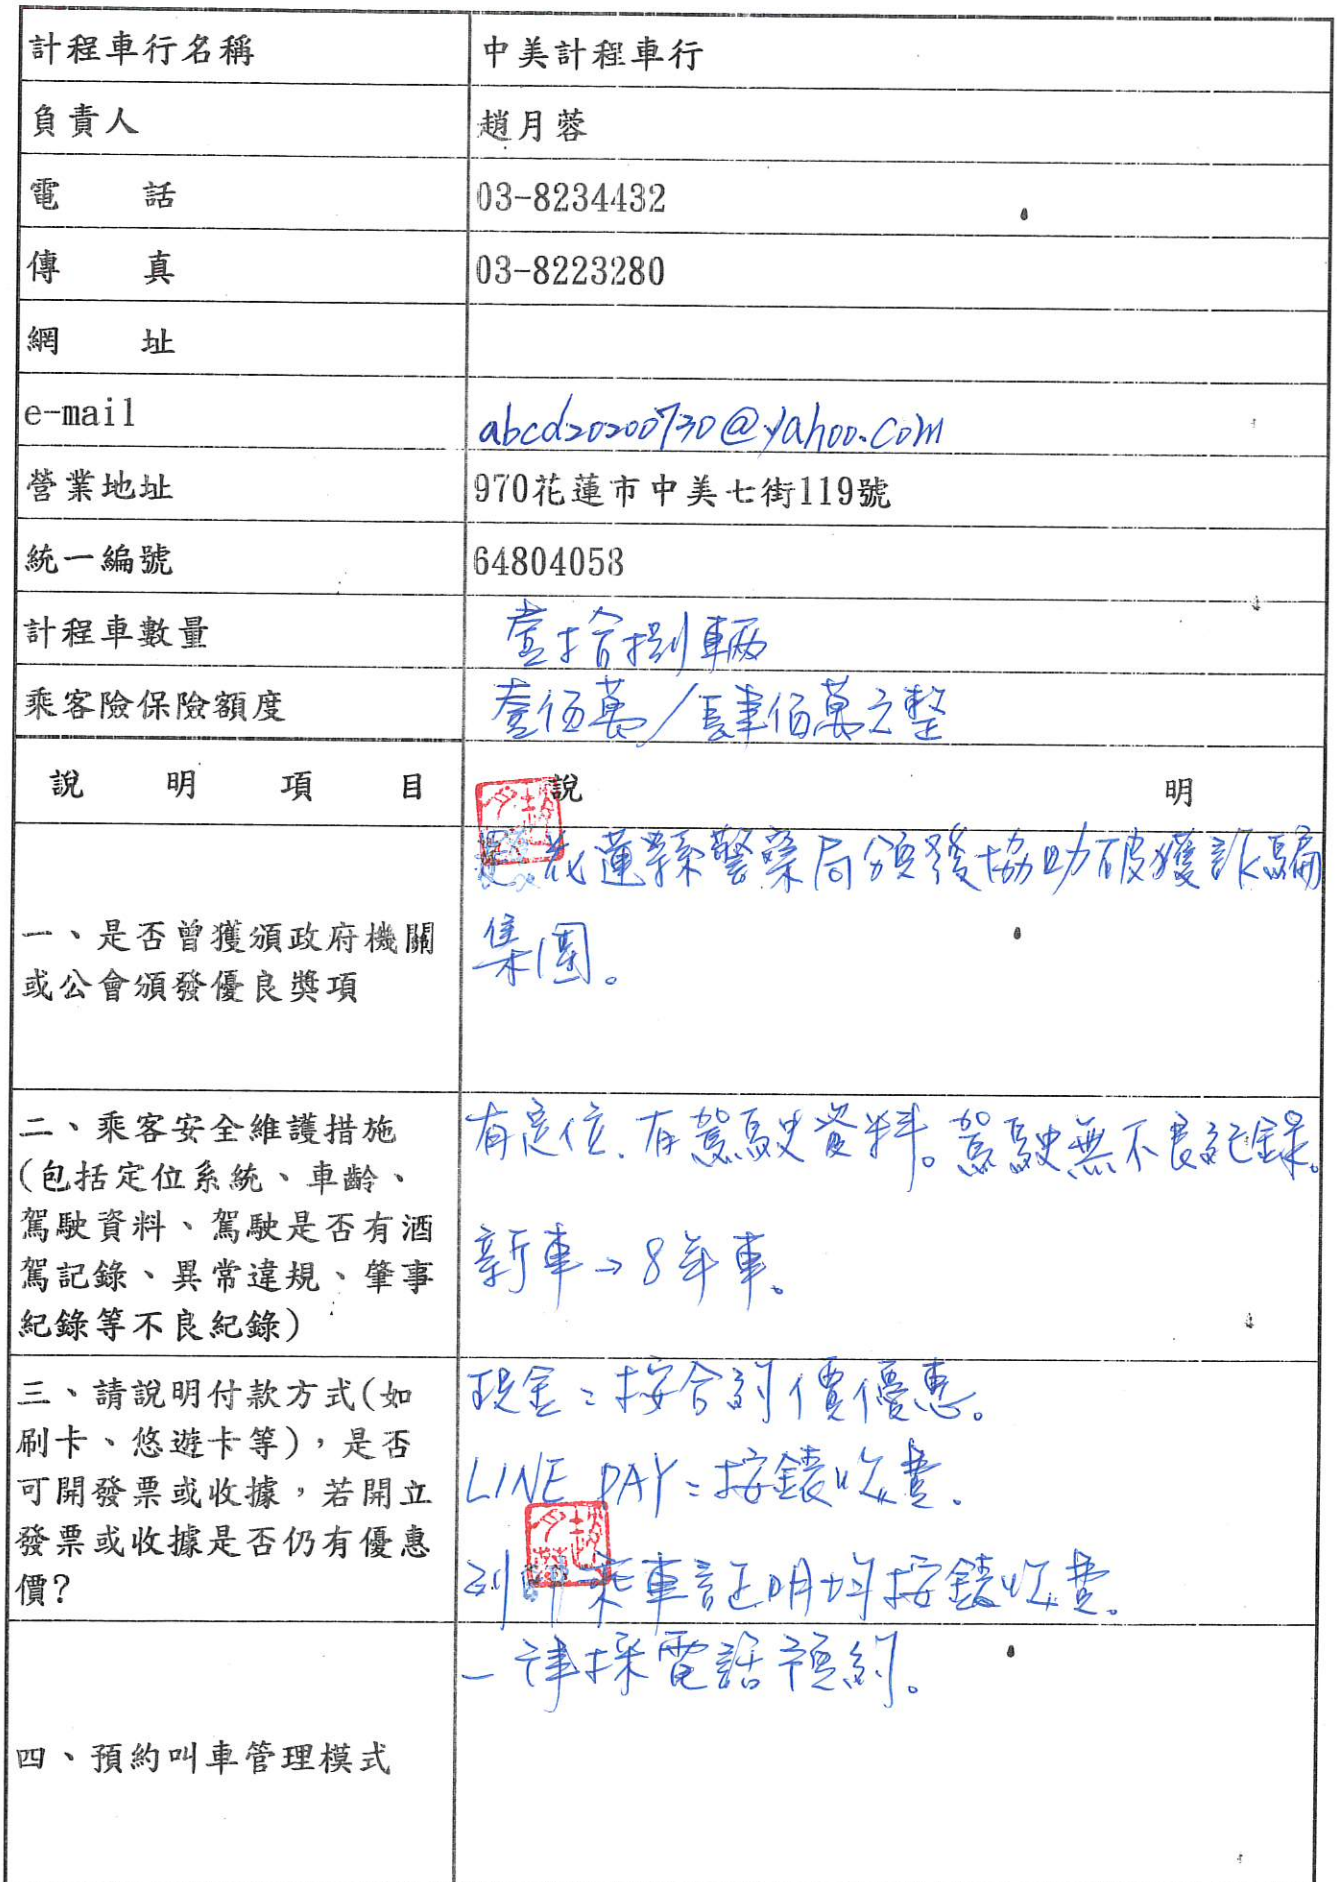 計程車行名稱 中美計程車行
負責人 趙月蓉
電 話 03-8234432
傳 真 03-8223280
網 址
e-mail abcd20200730@yahoo.com
營業地址 970花蓮市中美七街119號
統一編號 64804058
計程車數量 壹拾捌輛
乘客險保險額度 壹佰萬/肆佰萬元整
說 明 項 目 說 明
花蓮縣警察局頒發協助破獲詐騙
集團。
一、是否曾獲頒政府機關
或公會頒發優良獎項
二、乘客安全維護措施
(包括定位系統、車齡、
駕駛資料、駕駛是否有酒
駕記錄、異常違規、肇事
紀錄等不良紀錄)
有定位.有駕駛資料。駕駛無不良記錄。
新車→8年車。
三、請說明付款方式(如
刷卡、悠遊卡等),是否
可開發票或收據,若開立
發票或收據是否仍有優惠
價?
現金:按合約價優惠。
LINE PAY:按錶收費.
乘車証明均按錶收費。
一律採電話預約。
四、預約叫車管理模式